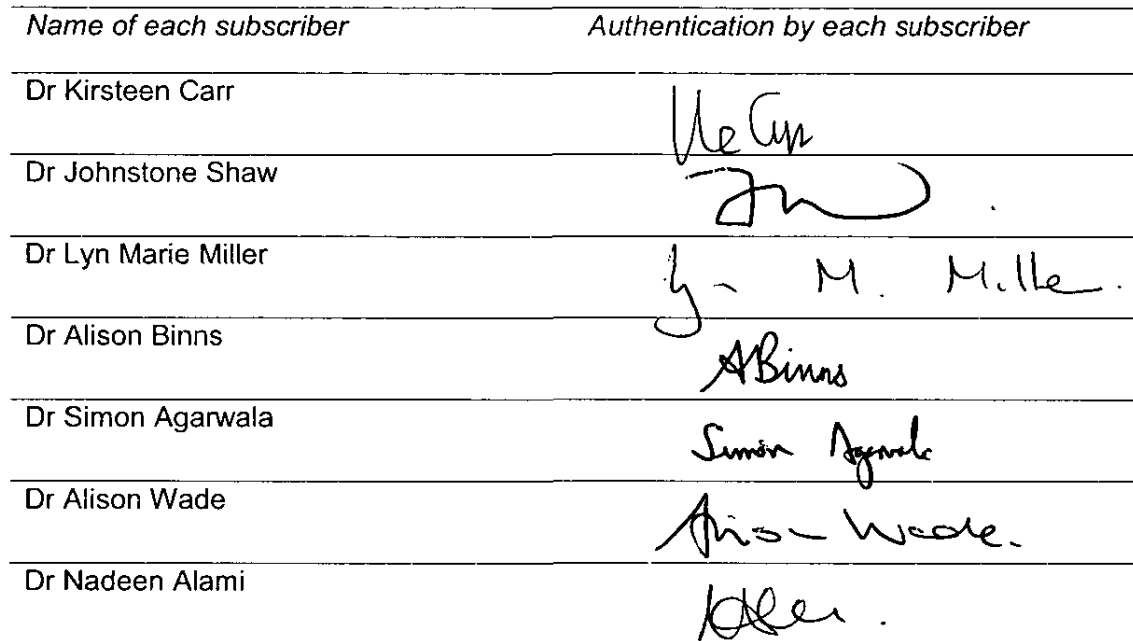 Name of each subscriber Authentication by each subscriber
Dr Kirsteen Carr
Dr Johnstone Shaw
Dr Lyn Marie Miller M. Miller.
Dr Alison Binns ABinns
Dr Simon Agarwala Simon Agarwala
Dr Alison Wade Alison Wade.
Dr Nadeen Alami